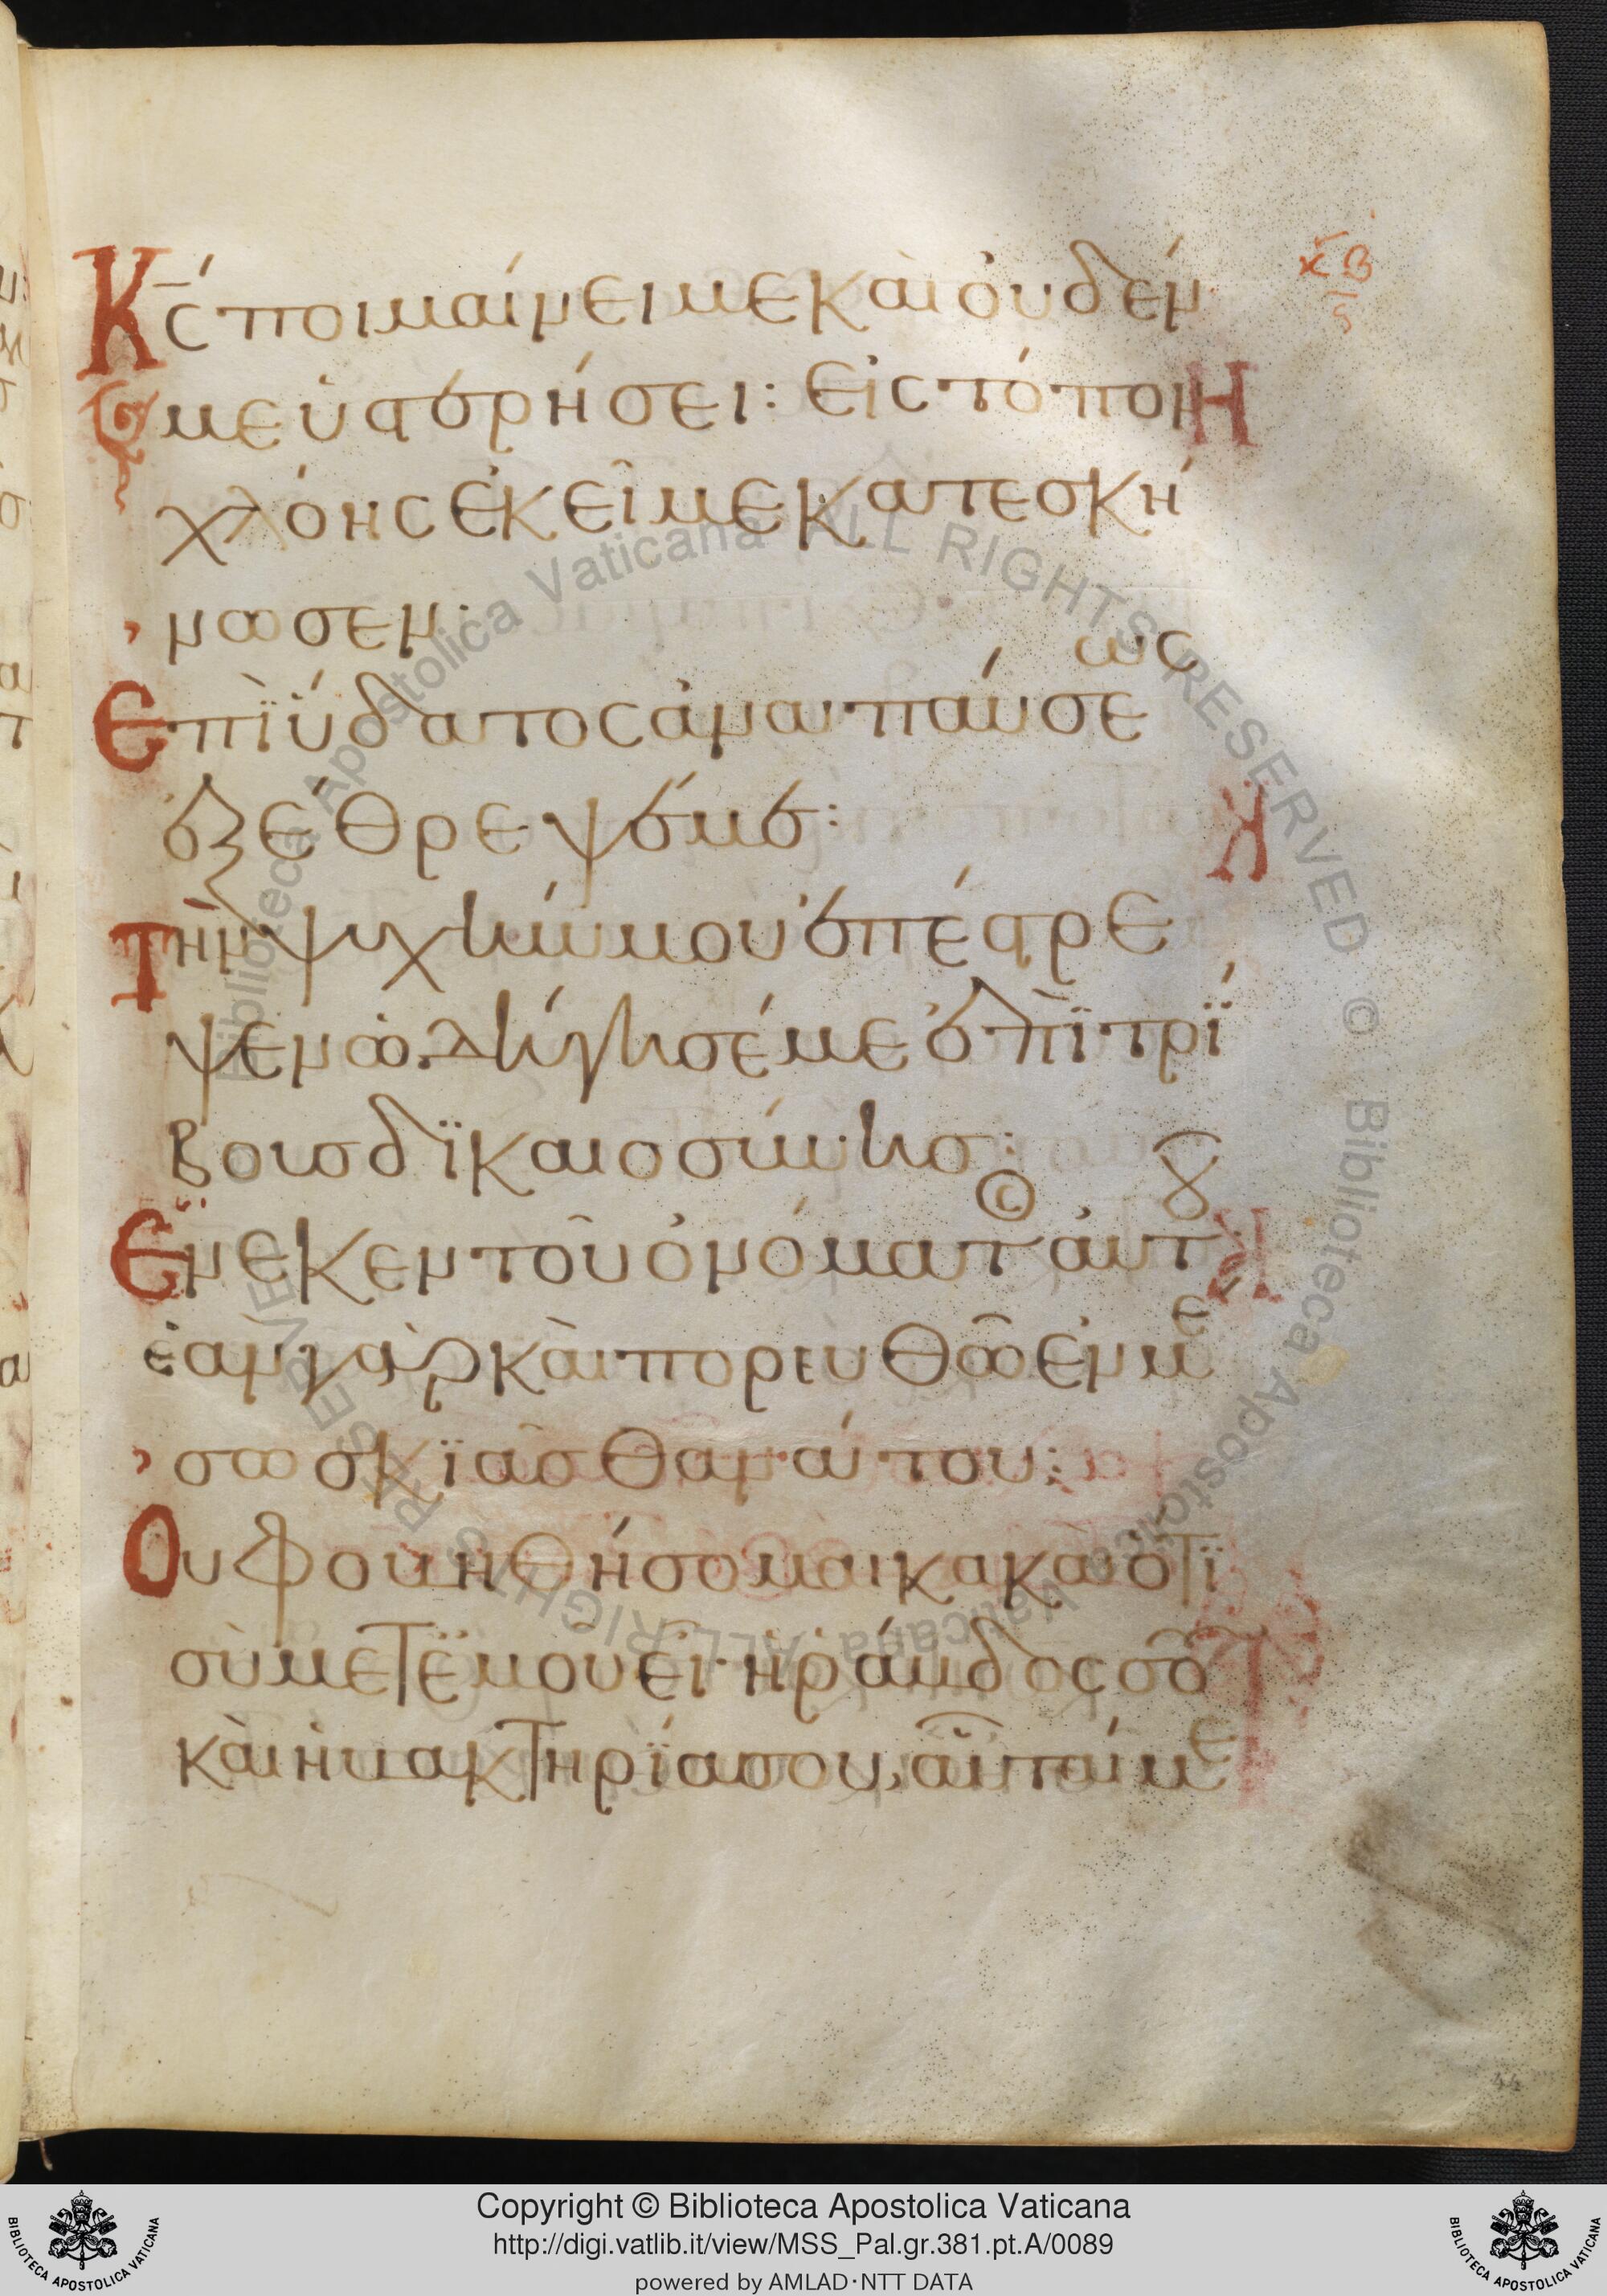 κβ
ς
Κ̅ς ποιμαίνει με καὶ οὐδέν
με ὑστερήσει : εἰς τόπον
χλόης ἐκεῖ με κατεσκή
νωσεν :
Ἐπὶ ὕδατος ἀναπαύσε
ως
ἐξέθρεψέ με :
Τὴν ψυχήν μου ἐπέστρε
ψεν ὡδήγησέ με ἐπὶ τρί
βους δικαιοσύνης :
Ἕνεκεν τοῦ ὀνόματος αὐτοῦ
ἐὰν γὰρ καὶ πορευθῶ ἐν μέ
σω σκιᾶς θανάτου :
Οὐ φοβηθήσομαι κακὰ ὅτι
σὺ μετ ἐμοῦ εἶ· ἡ ῥάβδος σου
καὶ ἡ βακτηρία σου, αὗταί με
44
Biblioteca Apostolica Vaticana ALL RIGHTS RESERVED ©
Biblioteca Apostolica Vaticana ALL RIGHTS RESERVED ©
Copyright © Biblioteca Apostolica Vaticana
http://digi.vatlib.it/view/MSS_Pal.gr.381.pt.A/0089
powered by AMLAD·NTT DATA
BIBLIOTECA APOSTOLICA VATICANA
BIBLIOTECA APOSTOLICA VATICANA